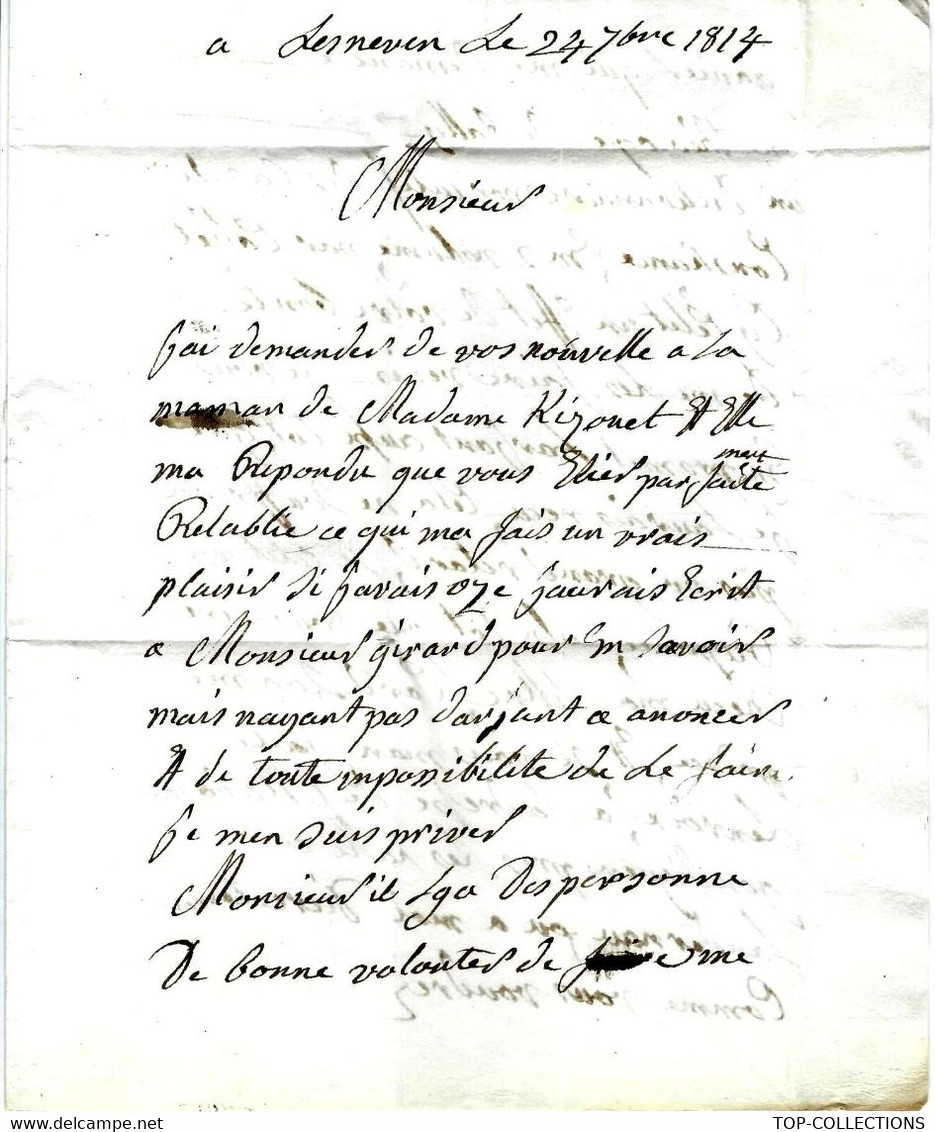 a Lesneven Le 24 7bre 1814
Monsieur
jai demander de vos nouvelle a la
maman de Madame Kizouet et Elle
ma Repondu que vous Etier parfaite ment
Retablie ce qui ma fais un vrais
plaisir Si javais oze jaurais Ecrit
a Monsieur girard pour En Savoir
mais nayant pas darjant a anoncer
et de toute impossibilite de Le faire
je men suis priver
Monsieur il Lya Des personne
De bonne volonter de me
TOP-COLLECTIONS